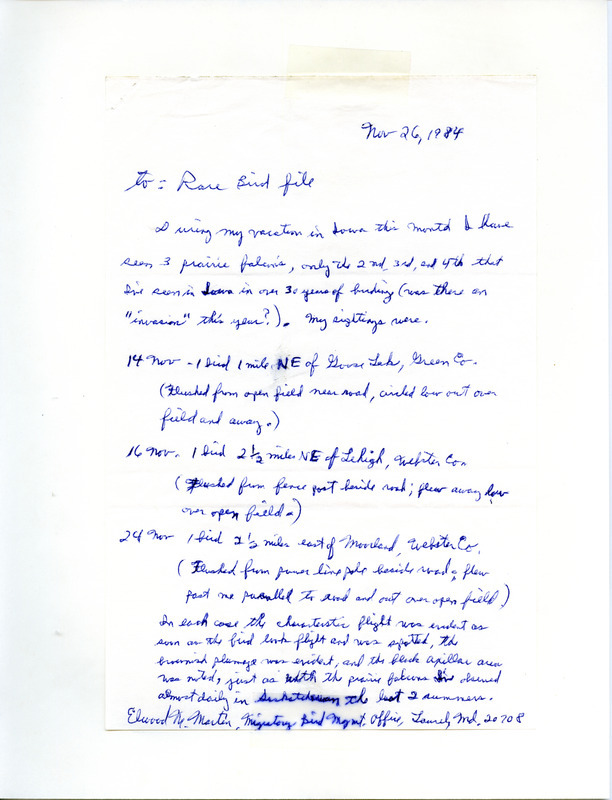 Nov 26, 1984
to: Rare Bird file
During my vacation in Iowa this month I have
seen 3 prairie falcons, only the 2nd, 3rd, and 4th that
I've seen in Iowa in over 30 years of birding (was there an
"invasion" this year?). My sightings were.
14 Nov - 1 bird 1 mile NE of Goose Lake, Green Co.
(Flushed from open field near road, circled low out over
field and away.)
16 Nov. 1 bird 2 1/2 miles NE of Lehigh, Webster Co.
(Flushed from fence post beside road; flew away low
over open field.)
24 Nov 1 bird 2 1/2 miles east of Moorland, Webster Co.
(Flushed from power line pole beside road; flew
past me parallel to road and out over open field)
In each case the charactestic flight was evident as
soon as the bird took flight and was spotted, the
brownish plumage was evident, and the black axillar area
was noted, just as with the prairie falcons I've observed
almost daily in Saskatchewan the last 2 summers.
Elwood M. Martin, Migratory Bird Mgmt. Office, Laurel, Md. 20708